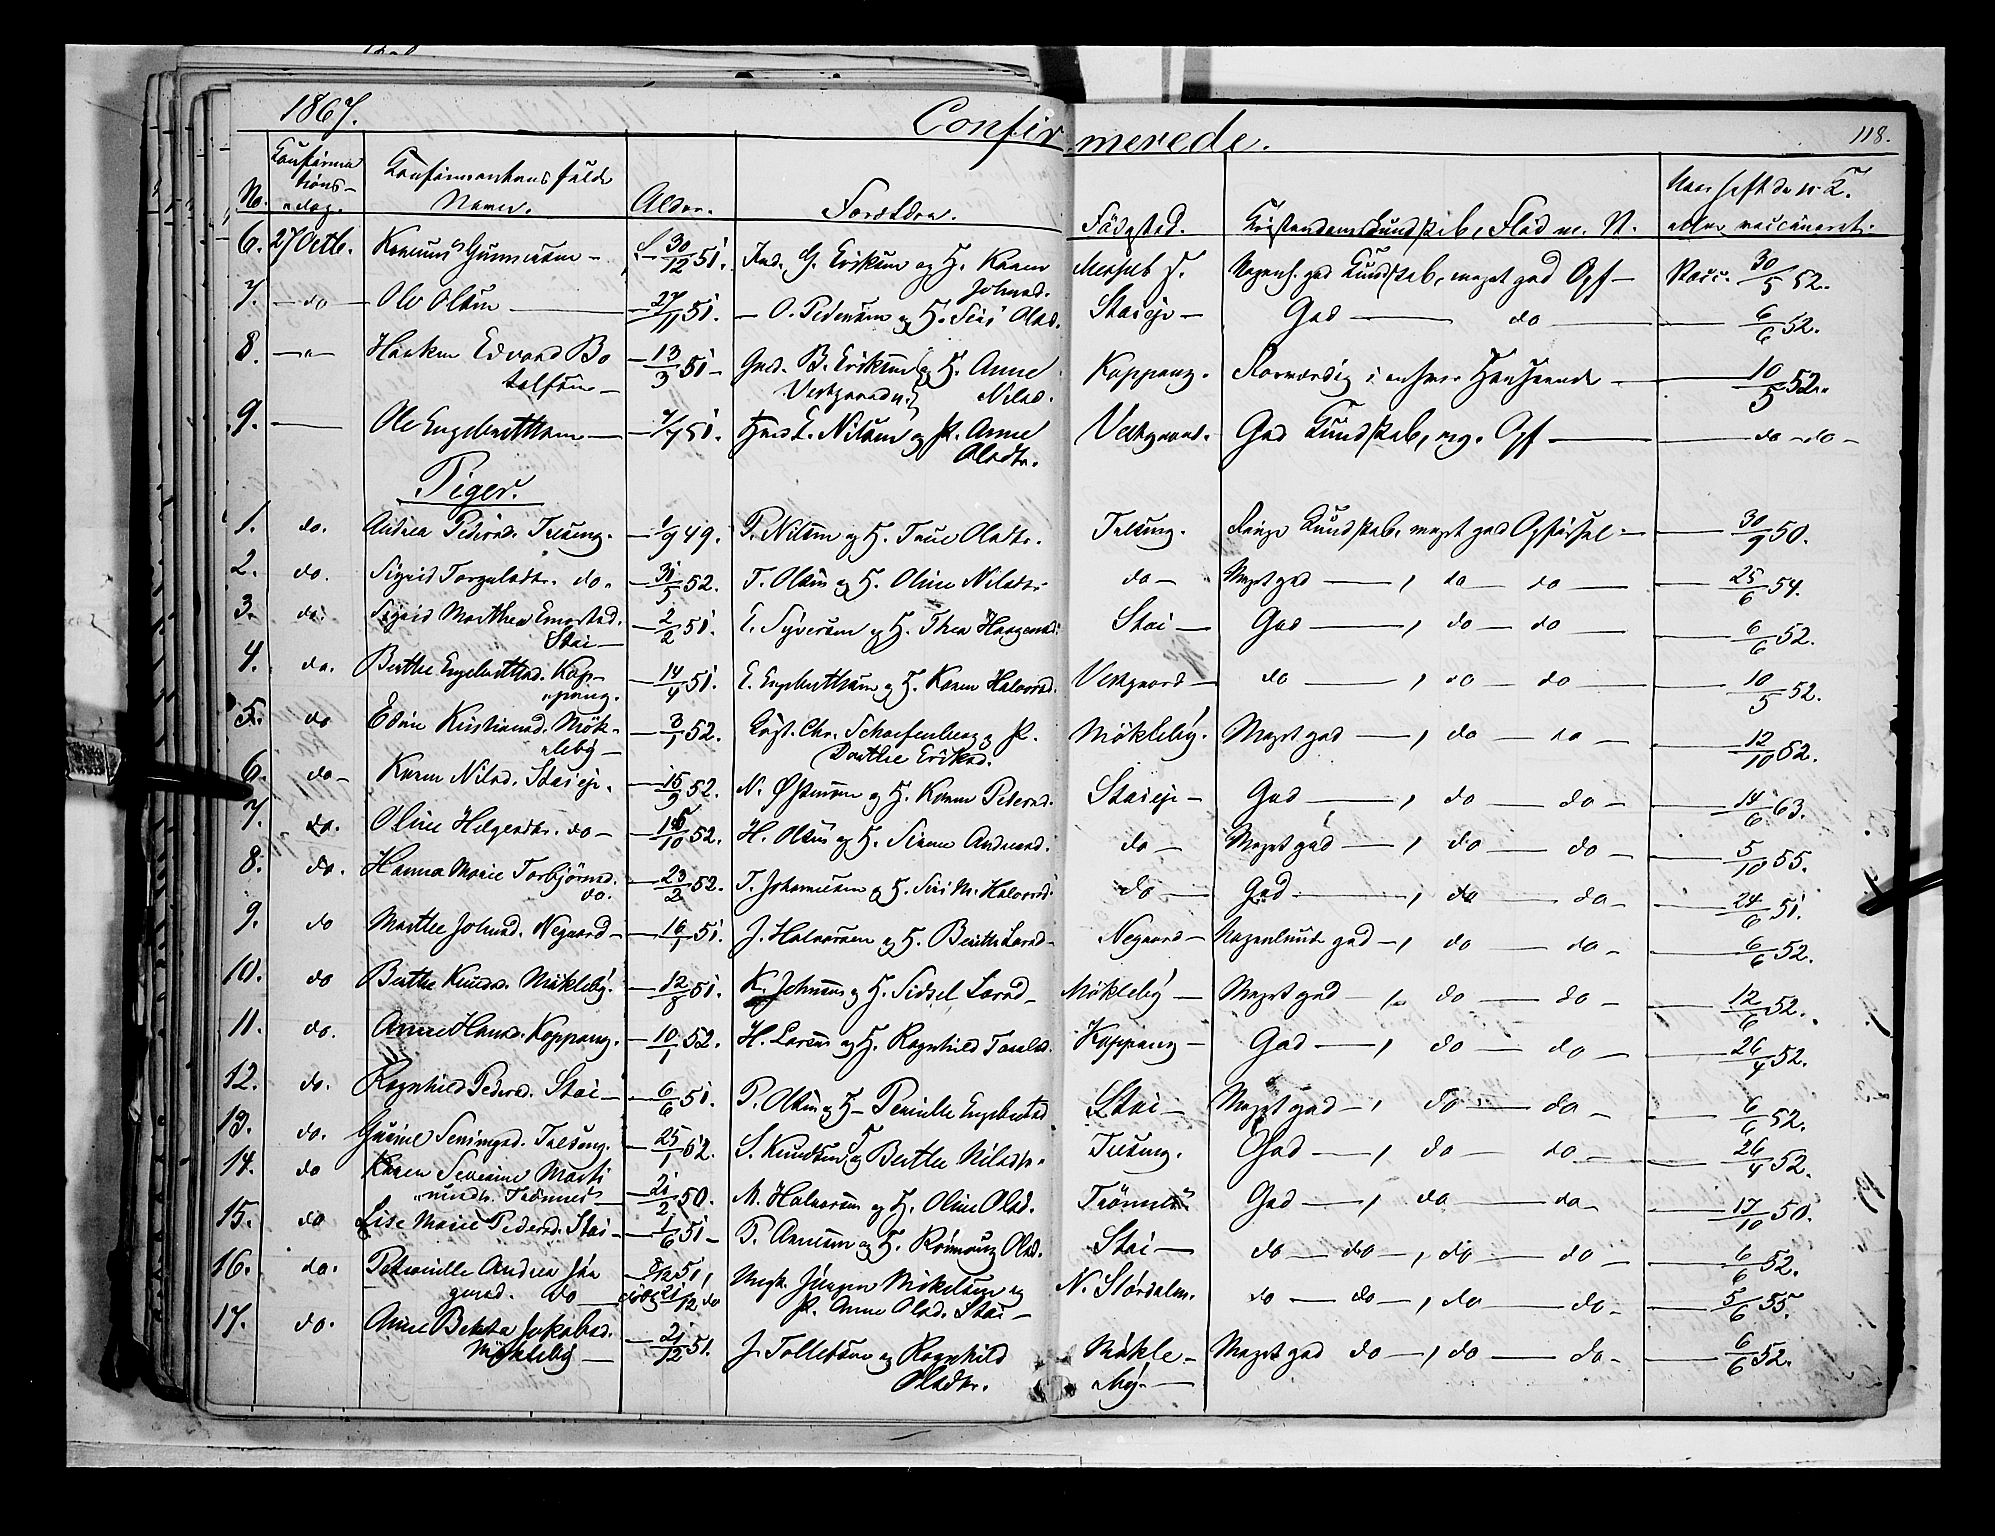 1867.
Confirmerede.
118.
No. Konfirmationsdag. Konfirmantens fulde Navn. Alder. Forældre. Fødested. Kristendoms Kundskab, Flid m. N. Naar havt de n. K. eller vaccineret.
6. 27 Octb. Gunerius Gunnersen f. 30/12 51. G. Eriksen og H. Karen Johnsd. god Kundskab, meget god Opf — Vacc. 30/5 52.
7. — do — Ole Olsen — 27/11 51. — O. Pedersen og H. Siri Olsd. Staieje — God — do — 6/6 52.
8. — " — Haaken Edvard Botolfsen — 13/3 51 — Gaard. B. Eriksen og H. Anne Nilsd. Vestgaarden Koppang. i enhver Henseende — 10/5 52.
9. — Ole Engebrethsen — 7/7 51. E. Nilsen og H. Anne Olsdtr. Vestgaard. God Kundskab, mg. Opf — do — do —
Piger.
1. do. Andrea Pedersd. Trøsung. — 1/9 49. P. Nilsen og H. Olsdtr. Trøsung. Kundskab, meget god Opførsel — 30/9 50.
2. do. Sigrid Torgelsdtr. do. — 31/5 52. T. Olsen og H. Oline Nilsdtr. do — Meget god —, do — do — 25/6 54.
3. do. Sigrid Marthea Stai — 2/2 51. E. Syversen og H. Thea Haagensd. Stai — God —, do — do — 6/6 52.
4. do. Berthe Engebrethsd. Koppang. — 14/4 51. E. Engebrethsen og H. Karen Halvorsd. Vestgaard — do —, do — do — 10/5 52.
5. do Edine Kristiansd. Mökleby — 3/1 52. Chr. Scharfenberg og H. Dorthe Eriksd. Mökleby. Meget god —, do — do — 12/10 52.
6. do — Karen Nilsd. Staieje. — 15/9 52. N. Østensen og H. Karen Pedersd. Staieje — God —, do — do — 14/6 63.
7. do. Oline Helgesdtr. do — 16/10 52. H. Olsen og H. Andersd. do — Meget god —, do — do — 5/10 55.
8. do. Hanna Marie Torbjörnsd. do. — 23/2 52. T. Johannesen og H. Siri M. Halvorsd. do — God —, do — do — 24/6 51.
9. do Marthe Johnsd. Negaard — 16/1 51. J. Halvorsen og H. Berithe Larsd — Negaard — Nogenlunde god —, do — do — 6/6 52.
10. do Berthe Knudsd. Mökleby. — 12/8 51. K. Johnsen og H. Sidsel Larsd — Mökleby — Meget god —, do — do — 12/6 52.
11. do. Anne Hansd. Koppang. — 10/1 52. H. Larsen og H. Ragnhild Koppang — God —, do — do — 26/4 52.
12. do. Ragnhild Pedersd. Stai — 6/6 51. P. Olsen og H — Pernille Engebretsd Stai — Meget god —, do — do — 6/6 52.
13. do. Trøsung. — 25/1 62. S. Knudsen og H. Berthe Nilsdtr. Trøsung. God —, do — do — 26/4 52.
14. do Karen Severine Martinusdtr. Trønnes — 21/2 50. M. Halvorsen og H. Oline Olsd. Trønnes God —, do — do — 17/10 50.
15. do Lise Marie Pedersd. Stai — 1/6 51 — P. Arnesen og H. Rönnoug Olsd. Stai — do — do —, do — do — 6/6 52.
16. do. Petronille Andrea Jörgensd. do — 8/12 51, 21/12 do Ungk. Jörgen Mikelsen og P. Anne Olsd. Stai — N. Stördalen. do — do —, do — do — 5/6 55.
17. do. Anne Beksta Jakobsd. Mökleby — 21/12 51. J. Tollefsen og Ragnhild Olsdtr. Mökleby. — Meget god do —, do — do — 6/6 52.